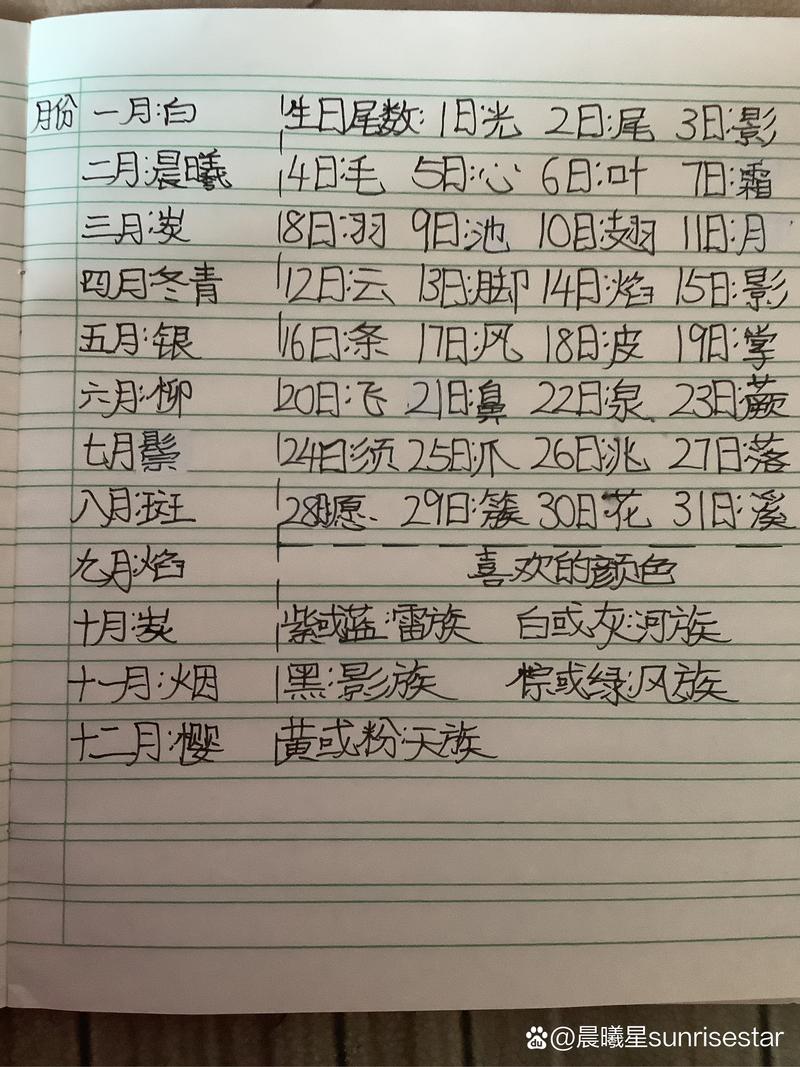 月份 一月:白 生日尾数: 1日:光 2日:尾 3日:影
二月:晨曦 4日:毛 5日:心 6日:叶 7日:霜
三月:炭 8日:羽 9日:池 10日:翅 11日:月
四月冬青 12日:云 13日:脚 14日:焰 15日:影
五月:银 16日:条 17日:风 18日:皮 19日:掌
六月:柳 20日:飞 21日:鼻 22日:泉 23日:蕨
七月:鬃 24日:须 25日:爪 26日:兆 27日:落
八月:斑 28日:愿 29日:簇 30日:花 31日:溪
九月:焰 喜欢的颜色
十月:炭 紫或蓝:雷族 白或灰:河族
十一月:烟 黑:影族 棕或绿:风族
十二月:樱 黄或粉:天族
@晨曦星sunrisestar